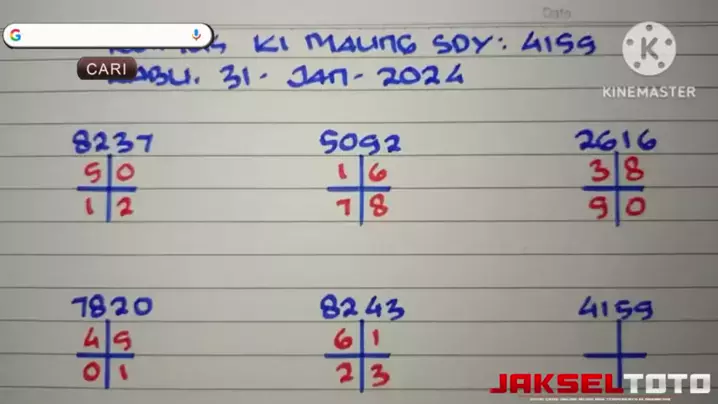 KI MAUNG SDY: 4159
CARI
31 - JAN - 2024
KINEMASTER
8237
5 0
1 2
5092
1 6
7 8
2616
3 8
9 0
7820
4 5
0 1
8243
6 1
2 3
4159
JAKSELTOTO